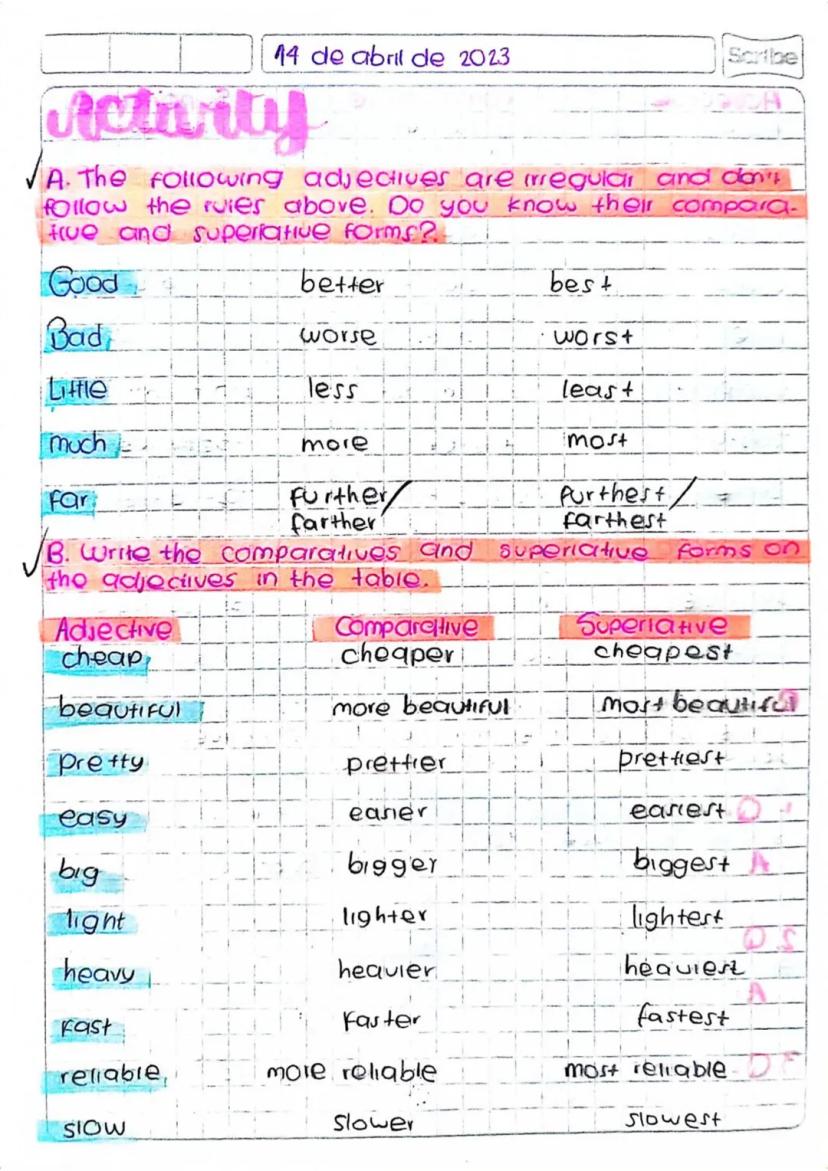 14 de abril de 2023
Scribe
Activity
A. The following adjectives are irregular and don't
follow the rules above. Do you know their compara-
tive and superlative forms?
Good better best
Bad worse worst
Little less least
much more most
far further/ furthest/
farther farthest
B. Write the comparatives and superlative forms on
the adjectives in the table.
Adjective Comparative Superlative
cheap cheaper cheapest
beautiful more beautiful most beautiful
pretty prettier prettiest
easy easier easiest
big bigger biggest
light lighter lightest
heavy heavier heaviest
fast faster fastest
reliable more reliable most reliable
slow slower slowest